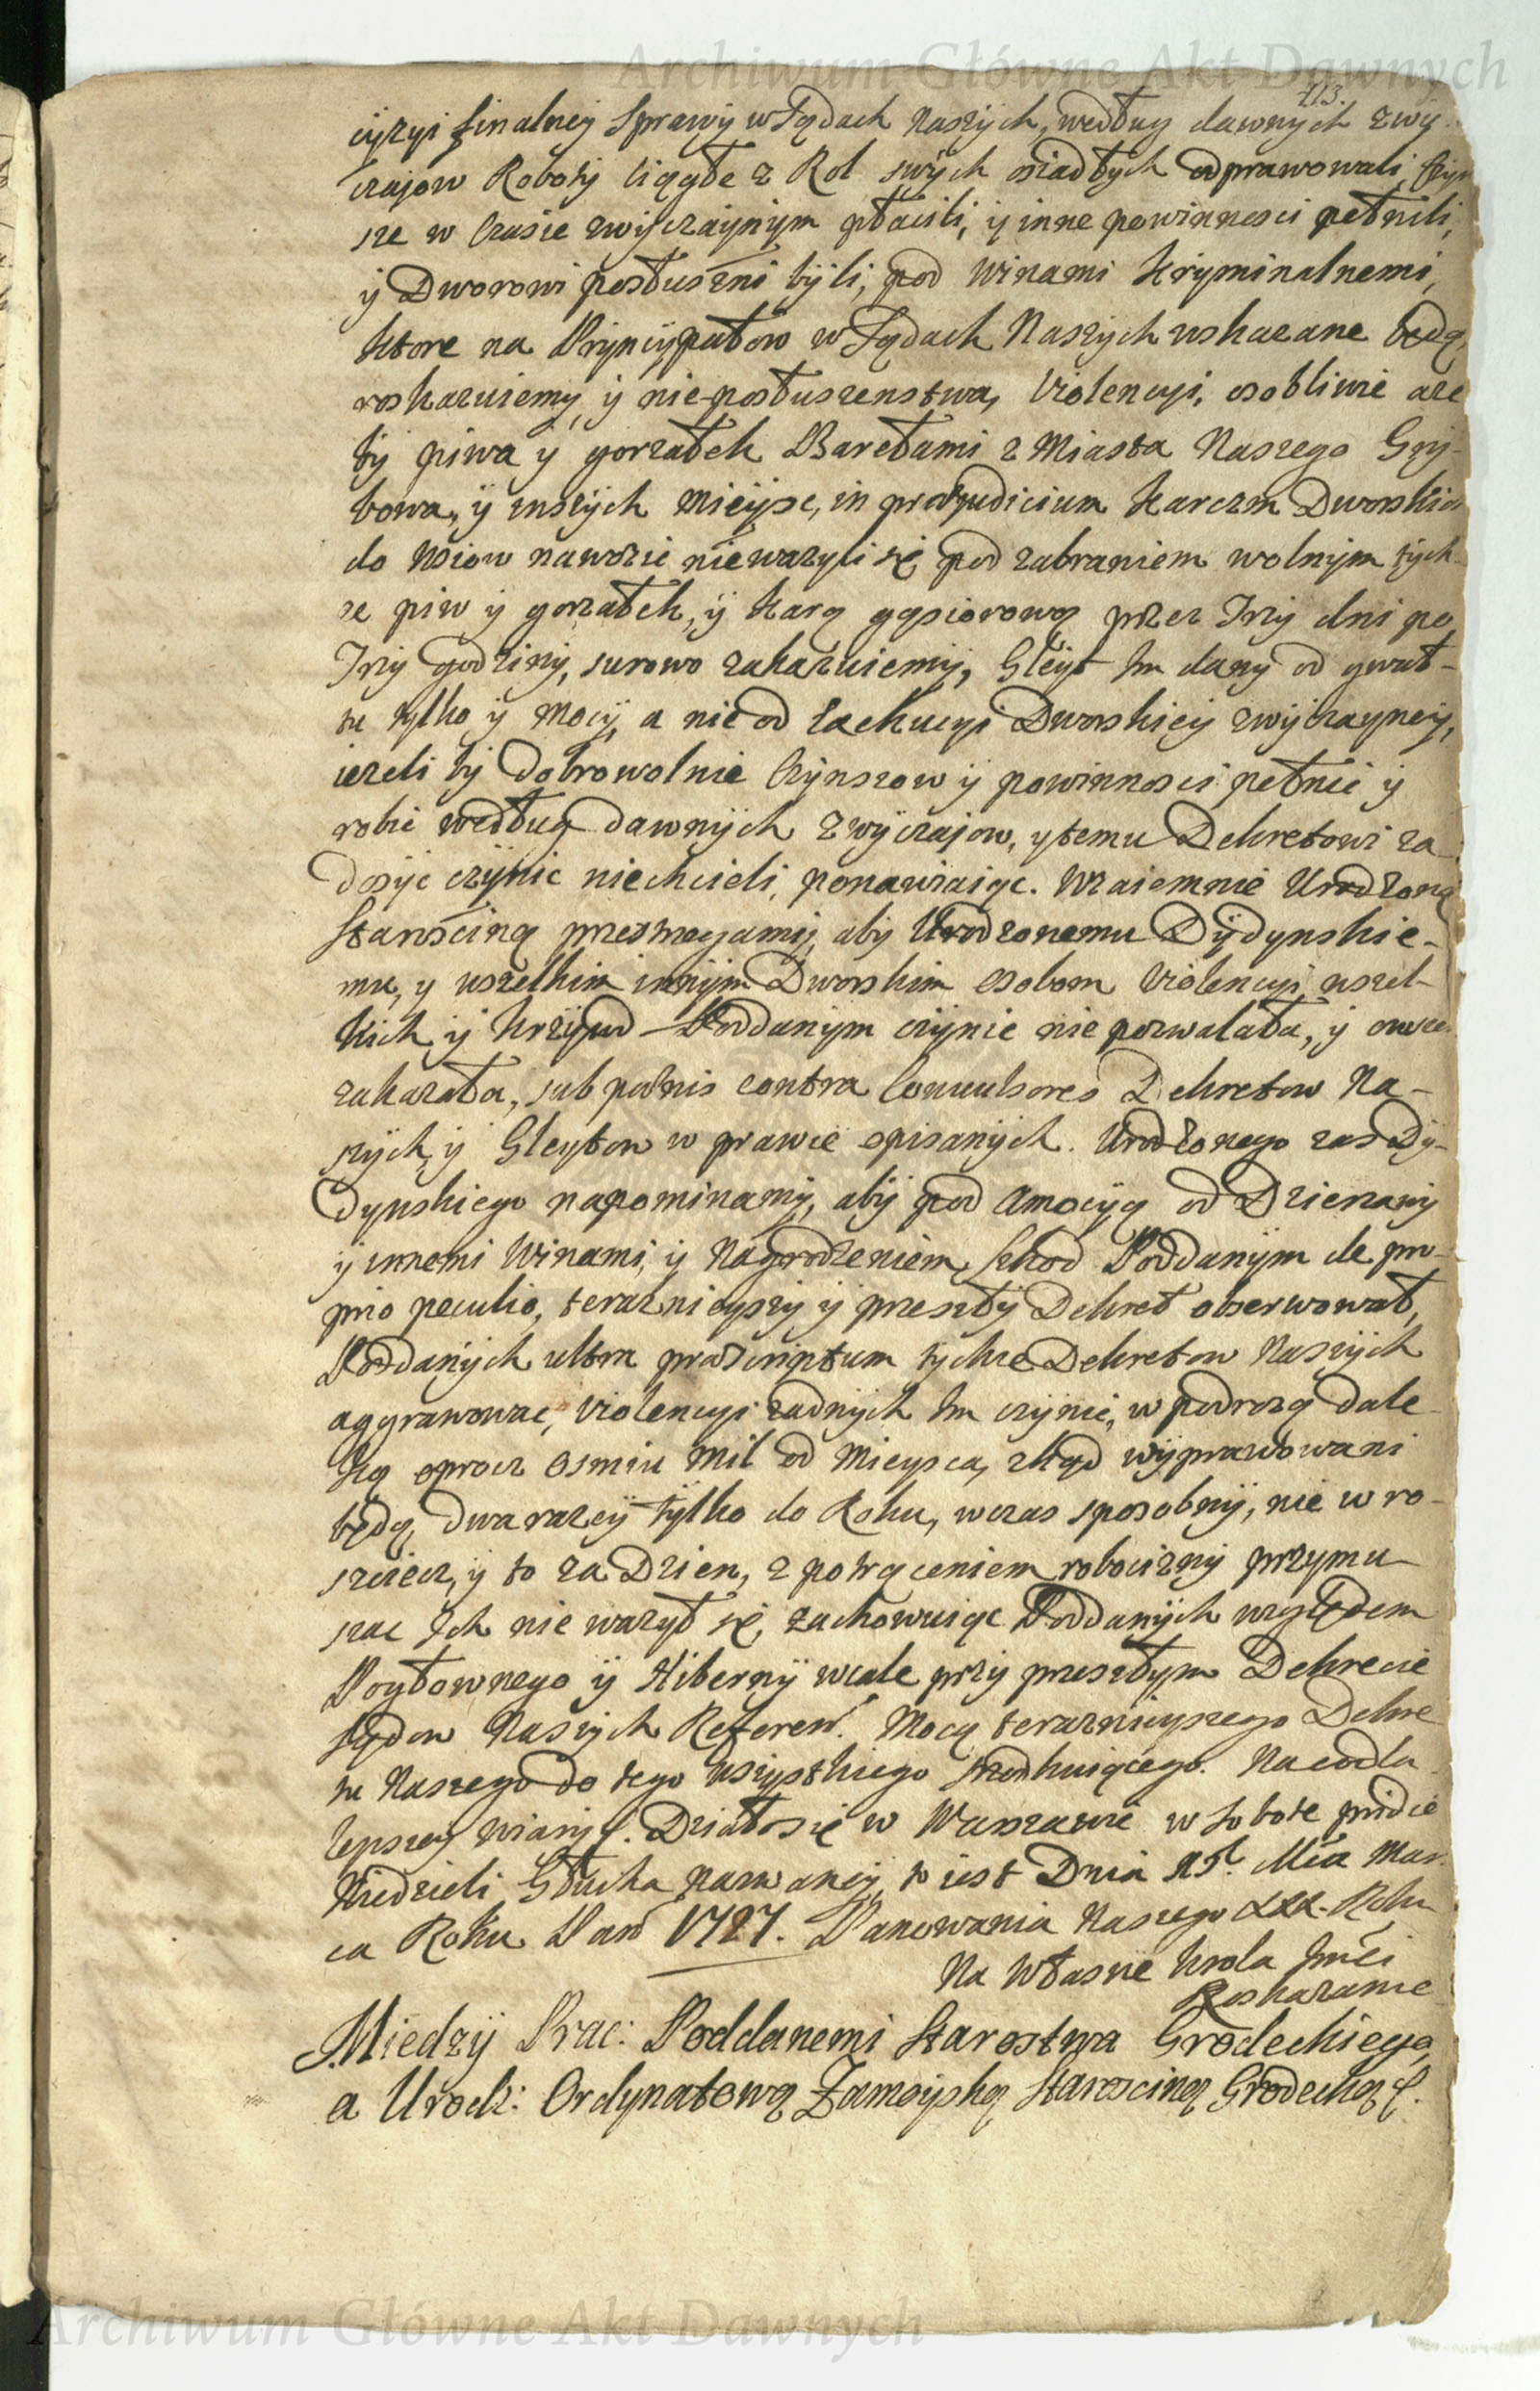 Archiwum Główne Akt Dawnych
113.
cyzyi finalney Sprawy w Sądach Naszych, według dawnych zwy-
czajow Roboty ciągłe z Rol swych osiadłych odprawowali, Czyn
sze w Czasie zwyczaynym płacili, y inne powinnosci pełnili,
y Dworowi posłuszni byli, pod Winami Kryminalnemi,
Ktore na Pryncypałow w Sądach Naszych wskazane będą,
roskazuiemy, y nieposłuszenstwa, Violencyi, osobliwie aze
by piwa y gorzałek Baryłami z Miasta Naszego Gry-
bowa, y inszych Mieysc, in præjudicium Karczm Dworskich
do Wsiow nawozic nieważyli się, pod zabraniem wolnym tych
ze piw y gorzałek, y Karą gąsiorową przez Trzy dni po
Trzy godziny, surowo zakazuiemy, Gleyt Im dany od gwał-
tu tylko y Mocy, a nie od Exekucyi Dworskiey zwyczayney,
iezeli by dobrowolnie Czynszow y powinnosci pełnic y
robic według dawnych zwyczajow, y temu Dekretowi za
dosyc czynic niechcieli, ponawiaiąc. Wzaiemnie Urodzoną
Starościną przestrzegamy, aby Urodzonemu Dydynskie-
mu, y wszelkim innym Dworskim Osobom Violencyi wszel-
kich y Krzywd Poddanym czynic nie pozwalała, y owsze
zakazała, sub pœnis contra Convulsores Dekretow Na-
szych, y Gleytow w prawie opisanych. Urodzonego zas Dy-
dynskiego napominamy, aby pod Amocyą od Dzierzawy
y innemi Winami, y Nagrodzeniem Szkod Poddanym de pro-
prio peculio, teraznieyszy y przeszły Dekret obserwował,
Poddanych ultra præscriptum tychze Dekretow Naszych
aggrawowac, Violencyi zadnych Im czynic, w podrozą dale
ką oprocz Osmiu Mil od Mieysca, zkąd wyprawowani
będą, dwa razy tylko do Roku, w czas sposobny, nie w ro-
szciecz, y to za Dzien, z potrąceniem robocizny przymu-
szac Ich nie ważył się, zachowuiąc Poddanych względem
Pogłownego y Hiberny wcale przy przeszłym Dekrecie
Sądow Naszych Referen. Mocą terazniejszego Dekre
tu Naszego do tego wszystkiego Na co dla
lepszey wiary. Działo się w Warszawie w Sobotę pridie
Niedzieli Głucha nazwaney, to iest Dnia Mca Mar
ca Roku Pan 1727. Panowania Naszego XXX. Roku
Na Własne Krola Jmći
Roskazanie
Miedzy Prac: Poddanemi Starostwa Grodeckiego,
a Urodz: Ordynatową Zamoyską Starosciną Grodecką
Archiwum Główne Akt Dawnych